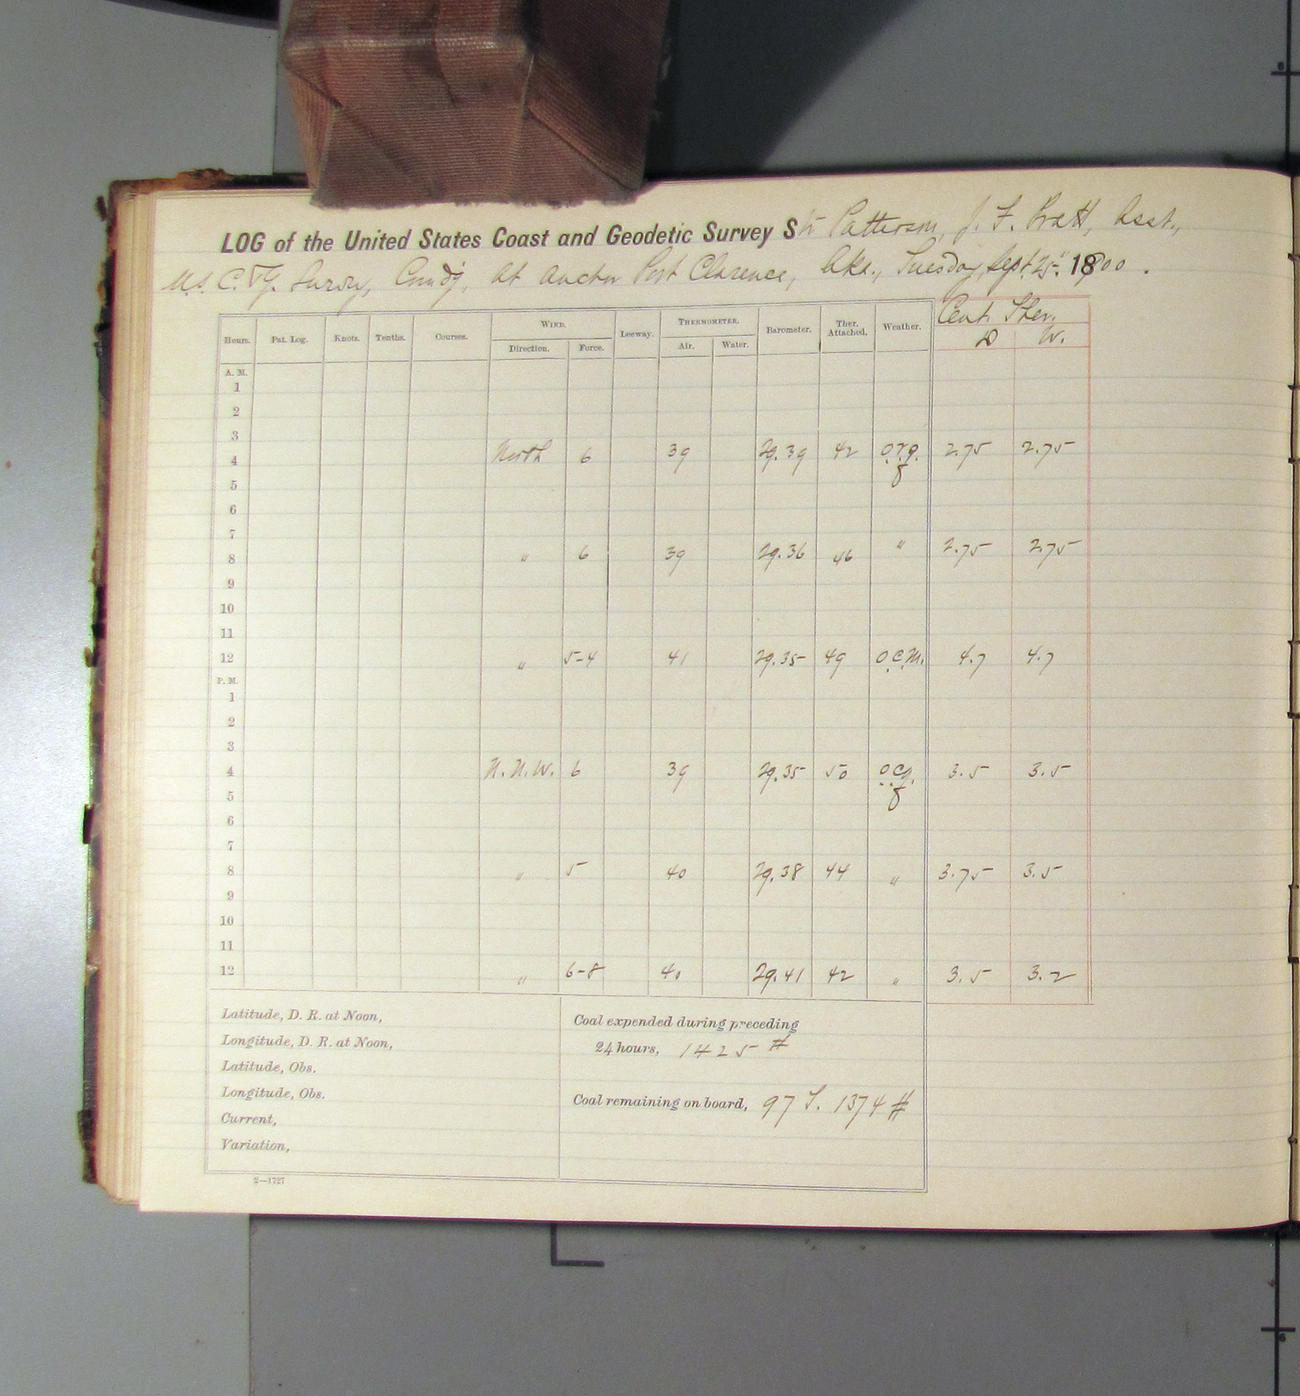 LOG of the United States Coast and Geodetic Survey Str Patterson, J. F. Pratt, Asst.,
U.S. C. & G. Survey, Comdg, at anchor Port Clarence, Aka., Tuesday, Sept 25", 1900.
Cent. Ther.
Hours. Pat. Log. Knots. Tenths. Courses. WIND. Leeway. THERMOMETER. Barometer. Ther. Attached. Weather. D W.
Direction. Force. Air. Water.
A. M.
1
2
3
4 North 6 39 29.39 42 o.r.q. 2.75 2.75
5
6
7
8 " 6 39 29.36 46 " 2.75 2.75
9
10
11
12 " 5-4 41 29.35 49 o.c.m. 4.7 4.7
P. M.
1
2
3
4 N. N. W. 6 39 29.35 50 o.c.q. 3.5 3.5
5
6
7
8 " 5 40 29.38 44 " 3.75 3.5
9
10
11
12 " 6-8 40 29.41 42 " 3.5 3.2
Latitude, D. R. at Noon,
Longitude, D. R. at Noon,
Latitude, Obs.
Longitude, Obs.
Current,
Variation,
Coal expended during preceding
24 hours, 1425 #
Coal remaining on board, 97 T. 1374 #
2—1727
6
6